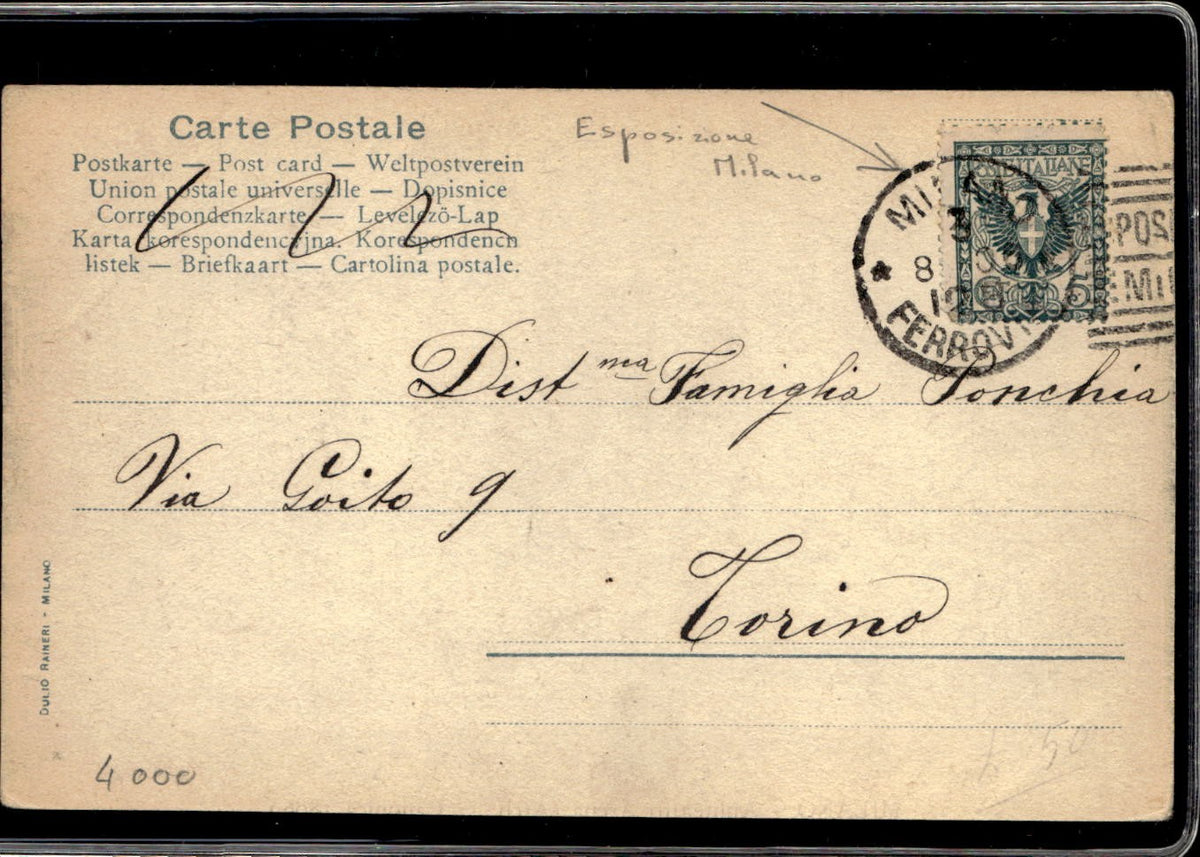 Carte Postale
Postkarte — Post card — Weltpostverein
Union postale universelle — Dopisnice
Correspondenzkarte — Levelező-Lap
Karta korespondencyjna. Korespondencn
listek — Briefkaart — Cartolina postale.
Esposizione
Milano
POSTE ITALIANE
FERROVIA
Dist ma Famiglia Tonchia
Via Goito 9
Torino
DULIO RAINERI - MILANO
4 000